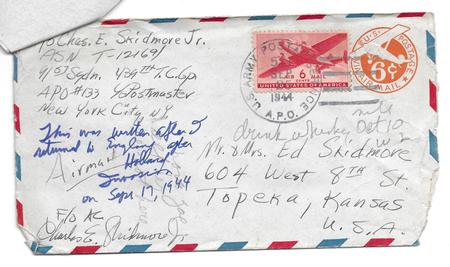 To Chas. E. Skidmore Jr.
ASN T-121691
91st Sqdn. 439th T.C.Gp
APO #133 % Postmaster
New York City, NY
This was written after I
returned to England after
Holland
Invasion
on Sept 17, 1944
Airman
F/O AC
Charles E. Skidmore Jr
U.S. ARMY POSTAL SERVICE
1944
A.P.O.
AIR 6 MAIL
CENTS
UNITED STATES OF AMERICA
U.S. POSTAGE
6¢
AIR MAIL
Oct 10
Mr. & Mrs. Ed Skidmore
604 West 8th St.
Topeka, Kansas
U.S.A.